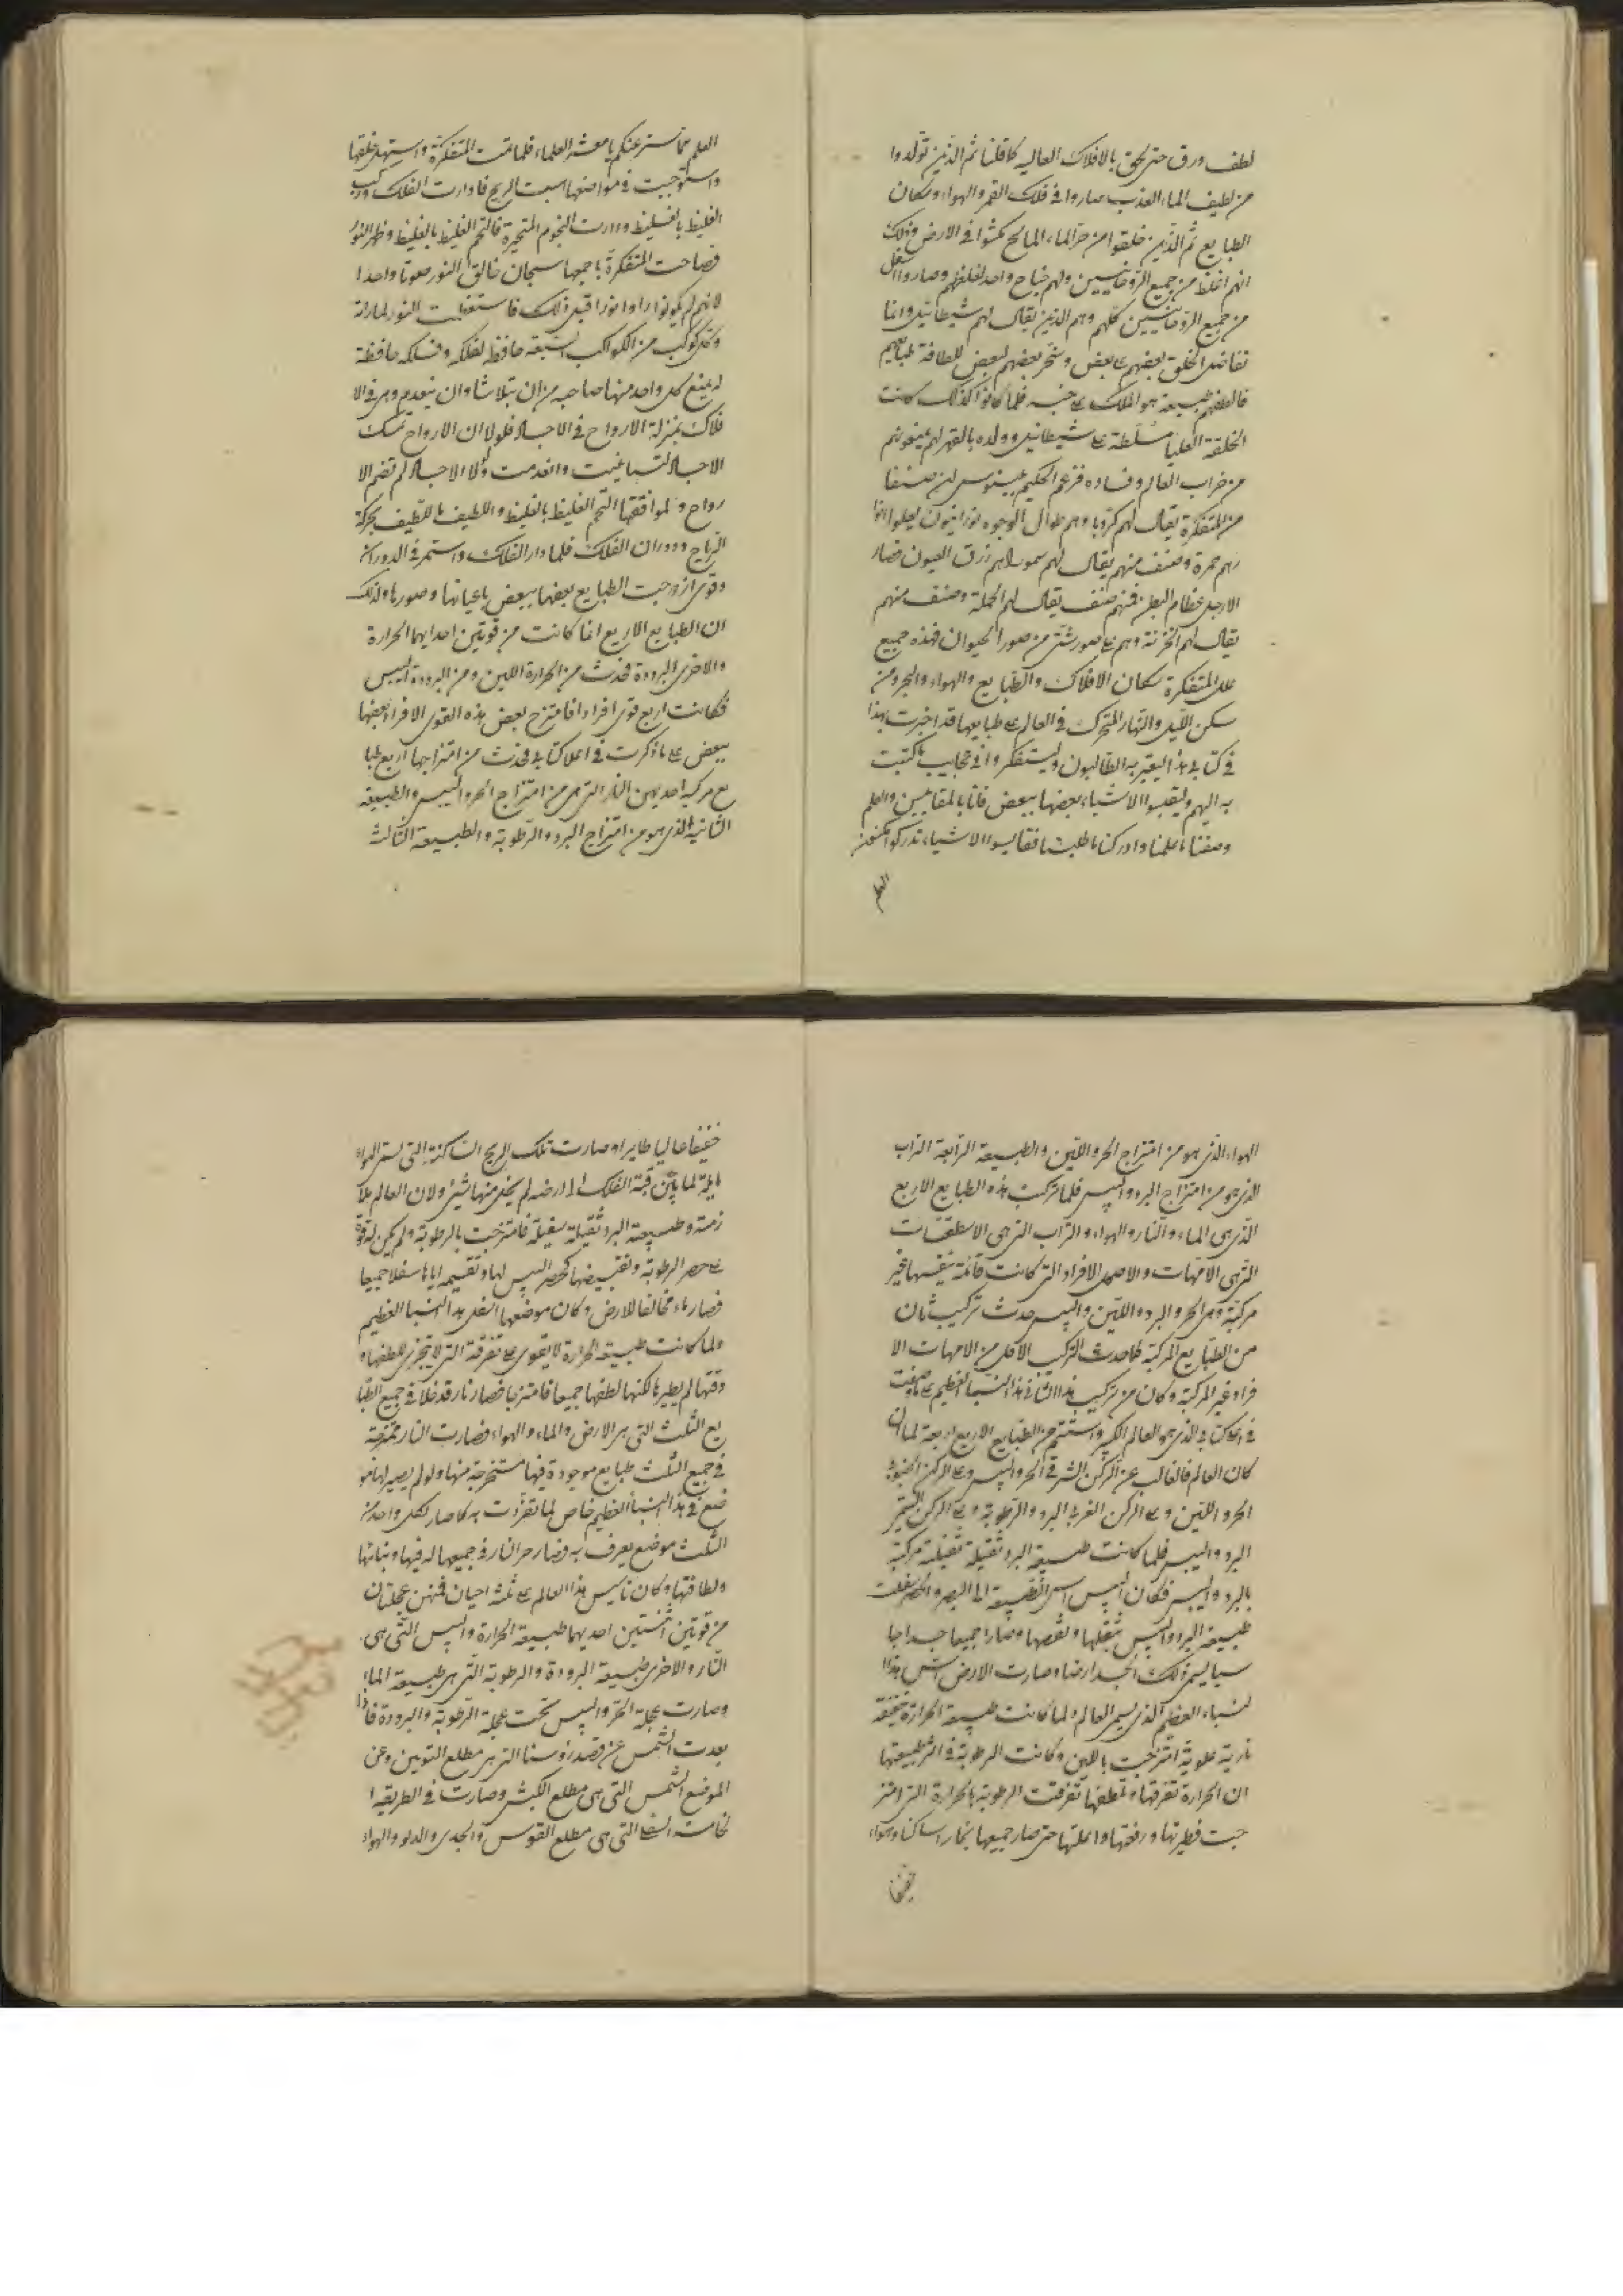 لطف ورق حتى لحق بالافلاك العاليه كما قلنا ثم الذين تولدوا
من لطيف الماء العذب صاروا في فلك القمر والهواء وسكان
الطبايع ثم الذين خلقوا من حر الماء المالح مكثوا في الارض وذلك
انهم اغلظ من جميع الروحانيين ولهم جناح واحد لغلظهم وصاروا اسفل
من جميع الروحانيين كلهم وهم الذين يقال لهم شيطانيل وانما
تفاضل الخلق بعضهم على بعض وسخر بعضهم لبعض للطافة طبايعهم
فالطفهم طبيعة هو الملك على جنسه فلما كانوا كذلك كانت
الخلقة العليا مسلطة على شيطانيل وولده بالقهر لهم يمنعونهم
من خراب العالم وفساده فزعم الحكيم بلينوس ان صنفا
من المتفكرة يقال لهم كروبا وهم طوال الوجوه نورانيون
حمرة وصنف منهم يقال لهم هم زرق العيون قصار
الارجل عظام البطن فمنهم صنف يقال لهم الحملة وصنف منهم
يقال لهم الخزنة وهم على صور شتى من صور الحيوان فهذه جميع
علل المتفكرة سكان الافلاك والطبايع والهواء والبحر ومن
سكن الليل والنهار المتحرك في العالم على طبايعها قد اخبرت بهذا
في كتابي هذا ليعتبر به الطالبون وليتفكروا في عجايب ما كتبت
به اليهم وليقيسوا الاشياء بعضها ببعض فانا بالمقاييس والعلم
وصفنا ما علمنا وادركنا ما طلبنا فقايسوا الاشياء تدركوا مكنون
العلم
العلم مما ستر عنكم يا معشر العلماء فلما تمت المتفكرة واستهل خلقها
واستوجبت في مواضعها هبت الريح فادارت الفلك وركب
الغليظ بالغليظ ودارت النجوم المتحيرة فالتحم الغليظ بالغليظ وظهر النور
فصاحت المتفكرة باجمعها سبحان خالق النور صوتا واحدا
لانهم لم يكونوا راوا نورا قبل ذلك فاستعظمت النور لما راته
وكل كوكب من الكواكب السبعه حافظ لفلكه وفلكه حافظة
له يمنع كل واحد منها صاحبه من ان يتلاشا وان ينعدم وهي في الا
فلاك بمنزلة الارواح في الاجساد فلولا ان الارواح تمسك
الاجساد لتباغيت وانعدمت ولولا الاجساد لم تضم الا
رواح ولموافقتها التحم الغليظ بالغليظ واللطيف باللطيف بحركة
الرياح ودوران الفلك فلما دار الفلك واستمر في الدوران
وقوي ازدوجت الطبايع بعضها ببعض باعيانها وصورها وذلك
ان الطبايع الاربع انما كانت من قوتين احدايهما الحرارة
والاخرى البرودة فحدث من الحرارة اللين ومن البرودة اليبس
فكانت اربع قوى افرادا فامتزج بعض هذه القوى الافراد بعضها
ببعض على ما ذكرت في اعلا كتابي فحدث من امتزاجها اربع طبا
يع مركبه احديهن النار التي هي من امتزاج الحر واليبس والطبيعة
الثانية الذي هو من امتزاج البرد والرطوبة والطبيعة الثالث
الهواء الذي هو من امتزاج الحر واللين والطبيعة الرابعة التراب
الذي هو من امتزاج البرد واليبس فلما تركبت هذه الطبايع الاربع
الذي هي الماء والنار والهواء والتراب التي هي الاسطقسات
التي هي الامهات والاصول الافراد التي كانت قائمة بنفسها غير
مركبة وهي الحر والبرد واللين واليبس حدث تركيب ثان
من الطبايع المركبة كما حدث التركيب الاول من الامهات الا
فراد غير المركبة وكان من تركيب هذا الثاني هذا البنيا العظيم على ما وصفت
في اول كتابي الذي هو العالم الكبير واستتم من الطبايع الاربع اربعة لما ان
كان العالم فالغالب عن الركن الشرقي الحر واليبس وعلى الركن الجنوبي
الحر واللين وعلى الركن الغربي البرد والرطوبة وعلى الركن اليسير
البرد واليبس فلما كانت طبيعة البرد ثقيلة ثقيلة مركبة
بالبرد واليبس فكان اليبس
طبيعة البرد واليبس بثقلها وبقبضها وصارا جميعا جسدا جا
سيا ليس ذلك الجسد ارضا وصارت الارض اس هذا
لنبياء العظيم الذي يسمى العالم ولما كانت طبيعة الحرارة خفيفة
نارية علوية امتزجت باللين وكانت الرطوبة في اثر طبيعتها
ان الحرارة تفرقها وتلطفها تفرقت الرطوبة بالحرارة التي امتز
جت فطيرتها ورفعتها واعلتها حتى صار جميعها بخارا ساكنا وهواء
خفيفا
خفيفا عاليا طايرا وصارت تلك الريح الساكنة التي تسمى الهواء
مايلة لما بين قبة الفلك الى الارض لم يخل منها شيئ ولان العالم ملا
زمة وطبيعة البرد ثقيلة سفيلة فامتزجت بالرطوبة ولم يكن له قوة
على حصر الرطوبة وتقبيضها كحصر اليبس لها وتقسيمه اياها سفلا جميعا
فصار ماء مخالفا للارض وكان موضعها اسفل هذا البنيا العظيم
ولما كانت طبيعة الحرارة لا تقوى على تفرقة التي لا تتجزى للطفها و
دقتها لم يطيرها لكنها لطفها جميعا فامتزجا فصار نارا قد خلا في جميع الطبا
يع الثلث التي هي الارض والماء والهواء فصارت النار ممتزجة
في جميع الثلث طبايع موجودة فيها مستخرجة منها ولو لم يصير لها مو
ضع في هذا البنيا العظيم خاص لما تفردت به كما صار لكل واحد من
الثلث موضع يعرف به فصار حر النار في جميعها له فيها وبنائها
ولطافتها وكان تاسيس هذا العالم على ثلثه احيان فمنهن عجلتان
من قوتين اثنتين احديهما طبيعة الحرارة واليبس التي هي
النار والاخرى طبيعة البرودة والرطوبة التي هي طبيعة الماء
وصارت عجلة الحر واليبس تحت عجلة الرطوبة والبرودة فاذا
بعدت الشمس عن قصد رؤسنا التي هي مطلع التوبين وعن
الموضع الشمس التي هي مطلع الكبش وصارت في الطريقه ا
لخامسة السفلى التي هي مطلع القوس والجدي والدلو والهواء